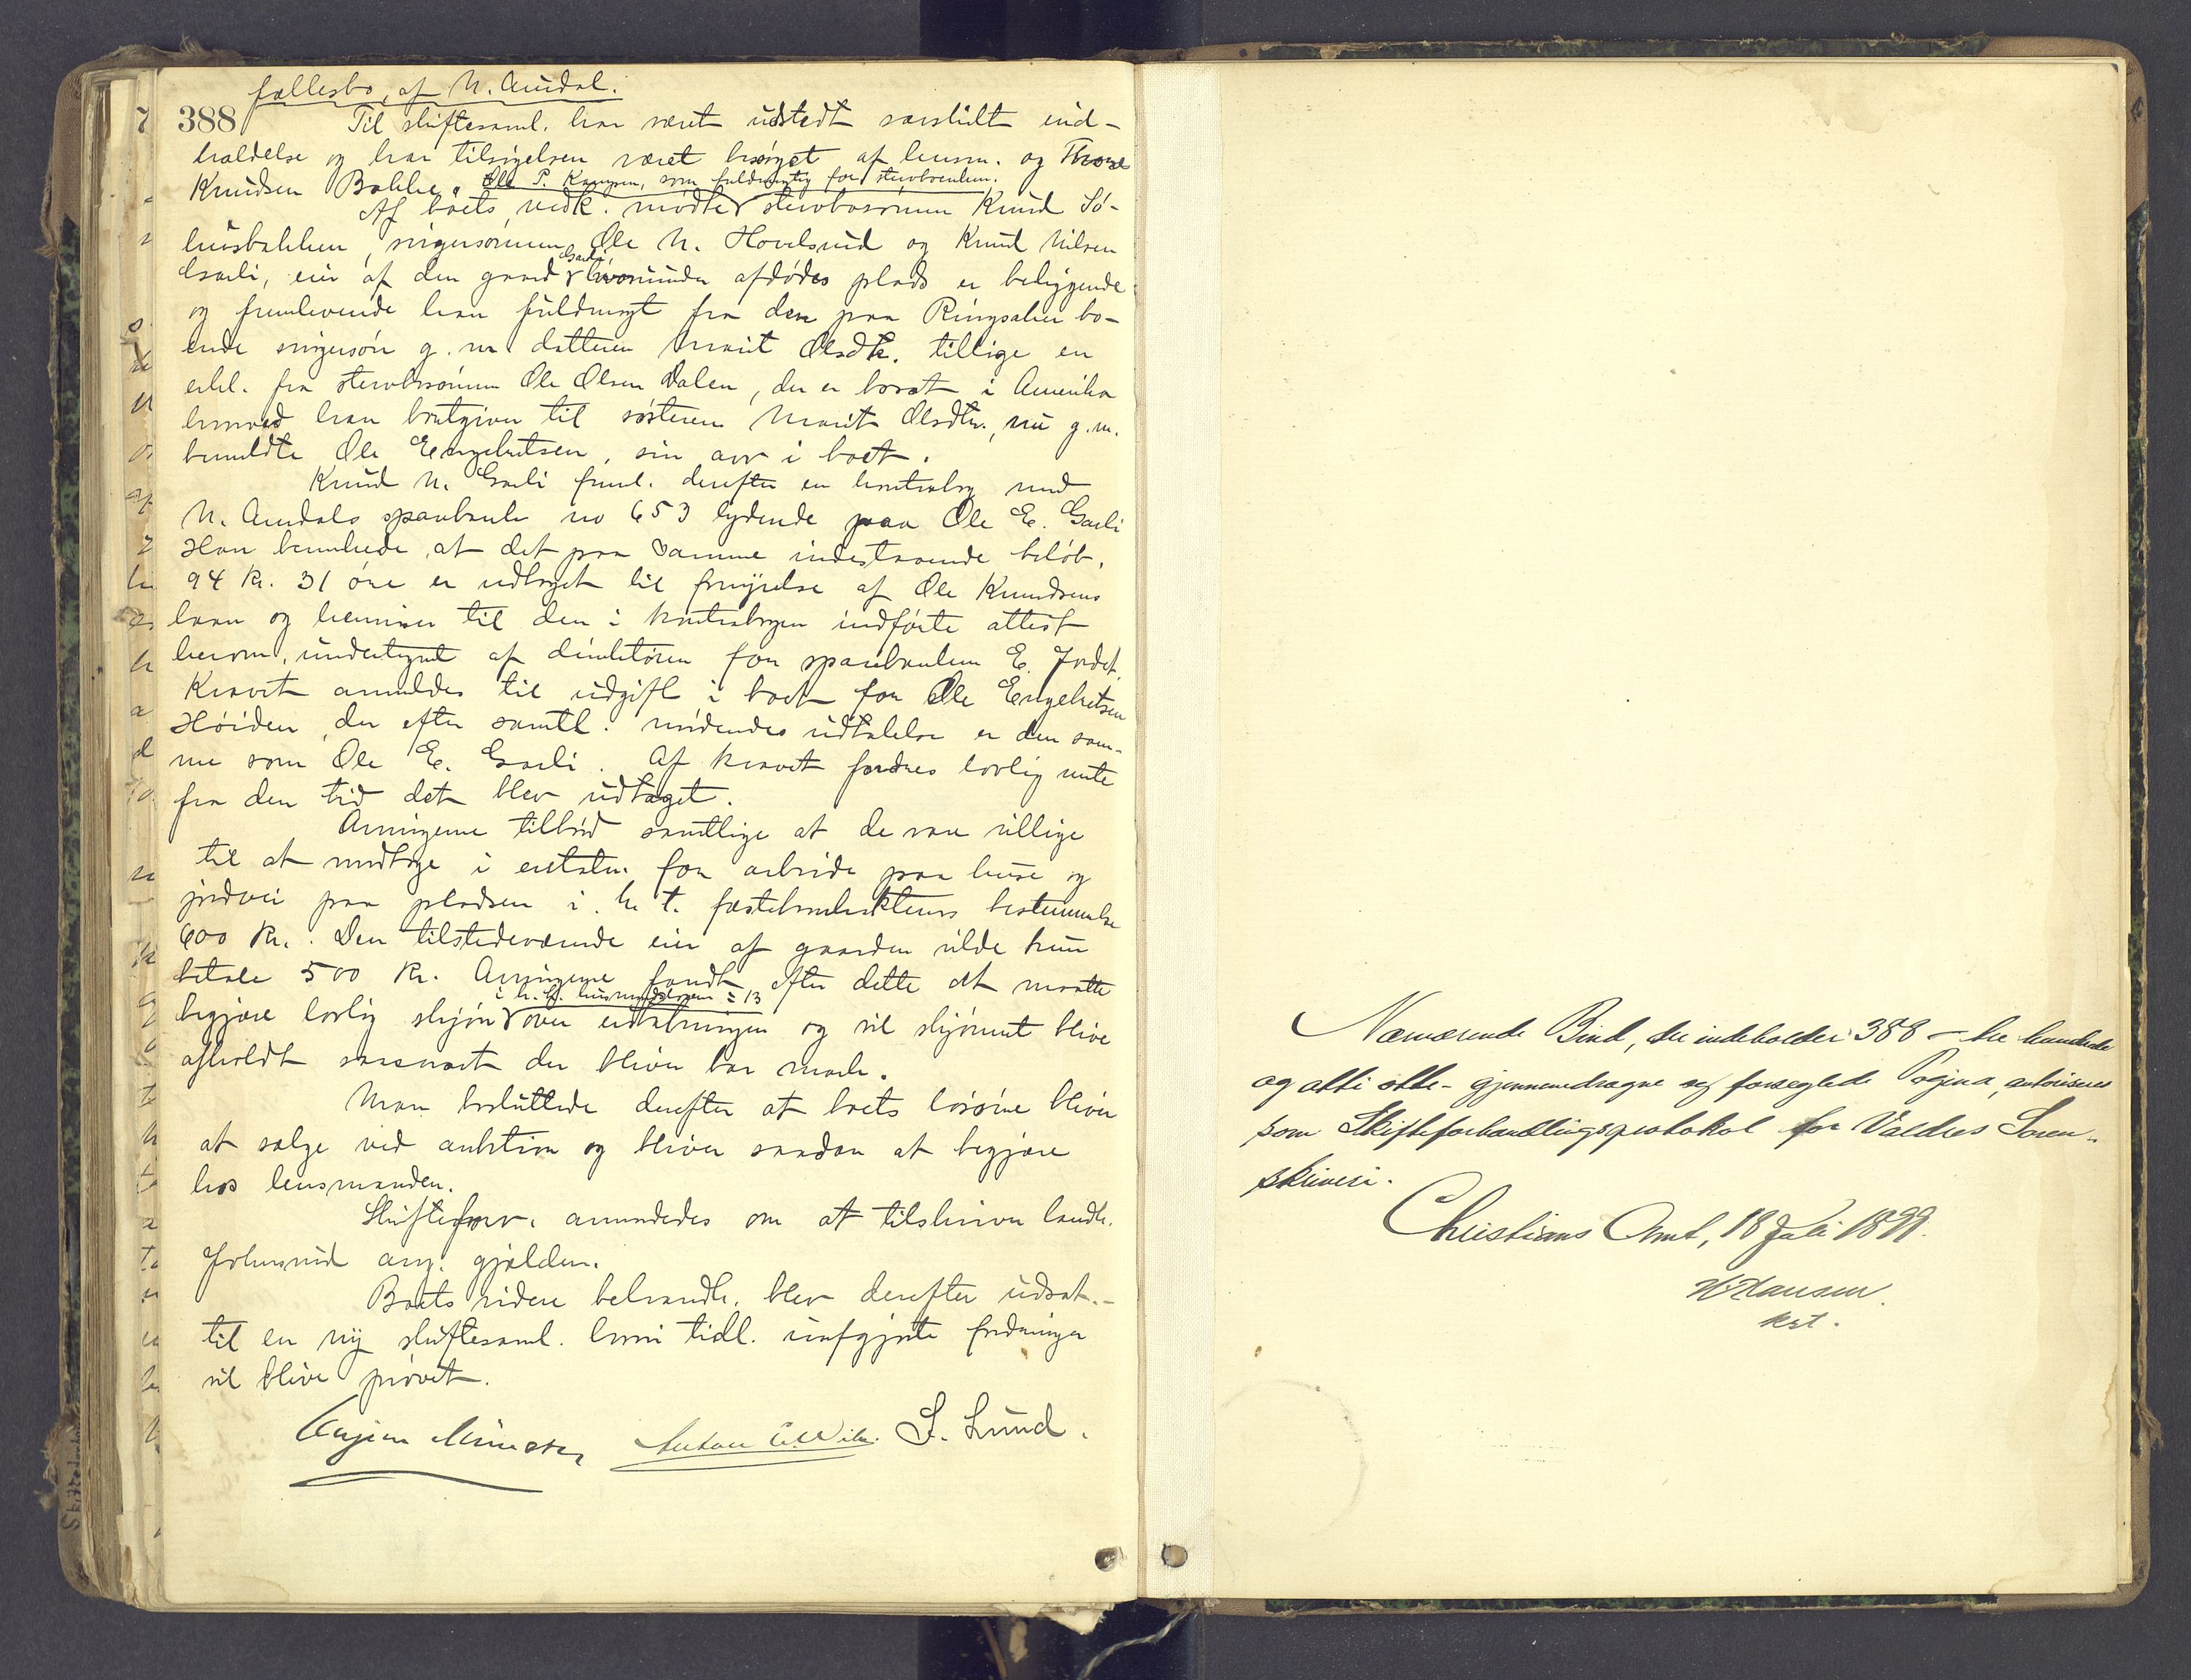 fællesbo, af N. Aurdal.
388 Til skiftesaml. har været udstedt særskilt ind-
kaldelse og har tilsigelsen været besørget af lensm. og Thore
Knudsen Bakke. Ole P. Kampen, som fuldmægtig for stervboenken.
Af boets vedk. mødte stervbosønnen Knud Sö-
huusbakken, svigersønnen Ole N. Hovelsrud og Knud Nilsen
Garli, eier af den gaard Garli hvorunder afdødes plads er beliggende
og fremlevende han fuldmagt fra den paa Ringsaker bo-
ende svigersøn g. m. datteren Marit Olsdtr. tillige en
erkl. fra stervbosønnen Ole Olsen Dalen, der er bosat i Amerika
hvorved han bortgiver til søsteren Marit Olsdtr., nu g.m.
bemeldte Ole Engebretsen, sin arv i boet.
Knud N. Garli freml. derefter en kontrabog med
N. Aurdals sparebank no 653 lydende paa Ole E. Garli
Han bemerkede, at det paa samme indestaaende beløb,
94 Kr. 31 øre er udtaget til fornyelse af Ole Knudsens
laan og henviser til den i kontrabogen indførte attest
herom, undertegnet af direktøren for sparebanken E. Jordet.
Kravet anmeldes til udgift i boet for Ole Engebretsen
Höiden, der efter samtl. mödendes udtalelse er den sam-
me som Ole E. Garli. Af kravet fordres lovlig rente
fra den tid det blev udtaget.
Arvingerne tilbød samtlige at de var villige
til at modtage i erstatn. for arbeide paa huse og
jordvei paa pladsen i h. t. fæstekontraktens bestemmelse
600 Kr. Den tilstedeværende eier af gaarden vilde kun
betale 500 Kr. Arvingerne fandt efter dette at maatte
begjære lovlig skjøn i h. t. husmandsloven § 13 over erstatningen og vil skjønnet blive
afholdt saasnart der bliver bar mark.
Man besluttede derefter at boets løsøre bliver
at sælge ved auktion og bliver saadan at begjære
hos lensmanden.
Skifteforv. anmodedes om at tilskrive landh.
Johnsrud ang. gjælden.
Boets videre behandl. blev derefter udsat.-
til en ny skiftesaml. hvori tidl. uafgjorte fordringer
vil blive prøvet.
S. Lund.
Nærværende Bind, der indeholder 388 - tre hundrede
og otti otte - gjennemdragne og forseglede Pagina, autoriseres
som Skifteforhandlingsprotokol for Valdres Soren-
skriveri.
Christians Amt, 18 Juli 1899.
H Hansen
kst.